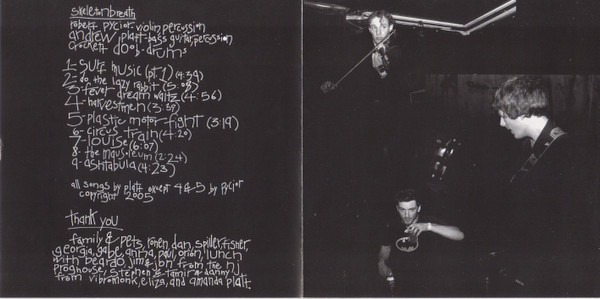 skeletonbreath
robert pycior-violin, percussion
andrew platt-bass guitar, percussion
crockett doob-drums
1- surf music (pt. 1) (4:39)
2- do the lazy rabbit (5:09)
3- fever dream waltz (4:56)
4- harvestmen (3:39)
5- plastic motor fight (3:19)
6- circus train (4:20)
7- louise (6:07)
8- the mausoleum (2:24)
9- ashtabula (4:23)
all songs by platt except 4&5 by pycior
copyright 2005
thank you
family & pets, ronen, dan, spiller, fisher,
georgia, gabe, anina, paul, orion, lunch
with beardo, jim & jon from the nj
proghouse, stephen & tamir & danny
from vibromonk, eliza, and amanda platt.